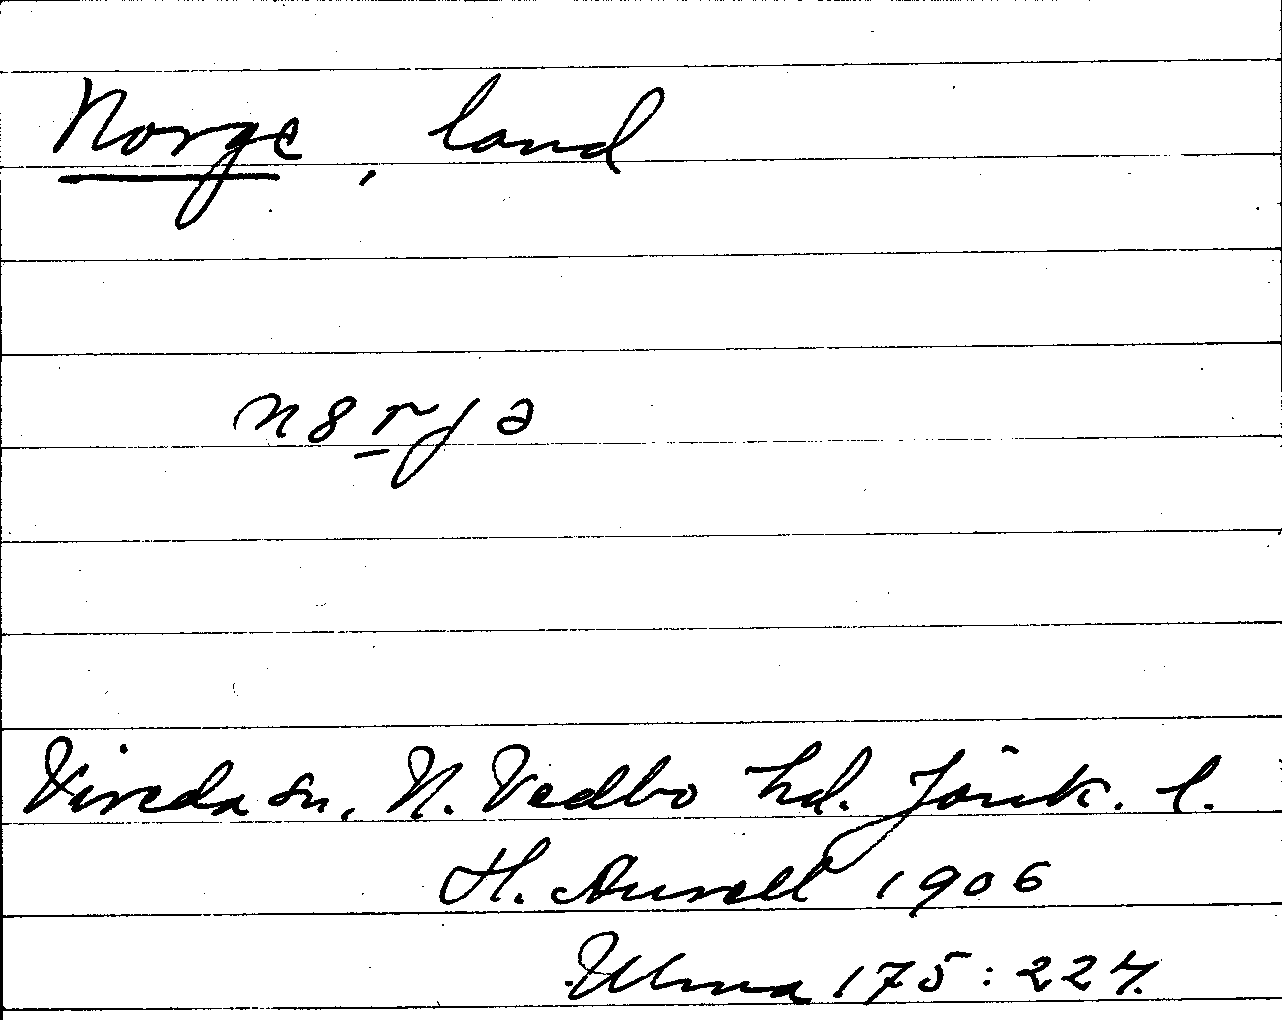 Norge, land
n8rjə
Vireda sn, N. Vedbo hd. Jönk. l.
H. Aurell 1906
Ulma 175:224.